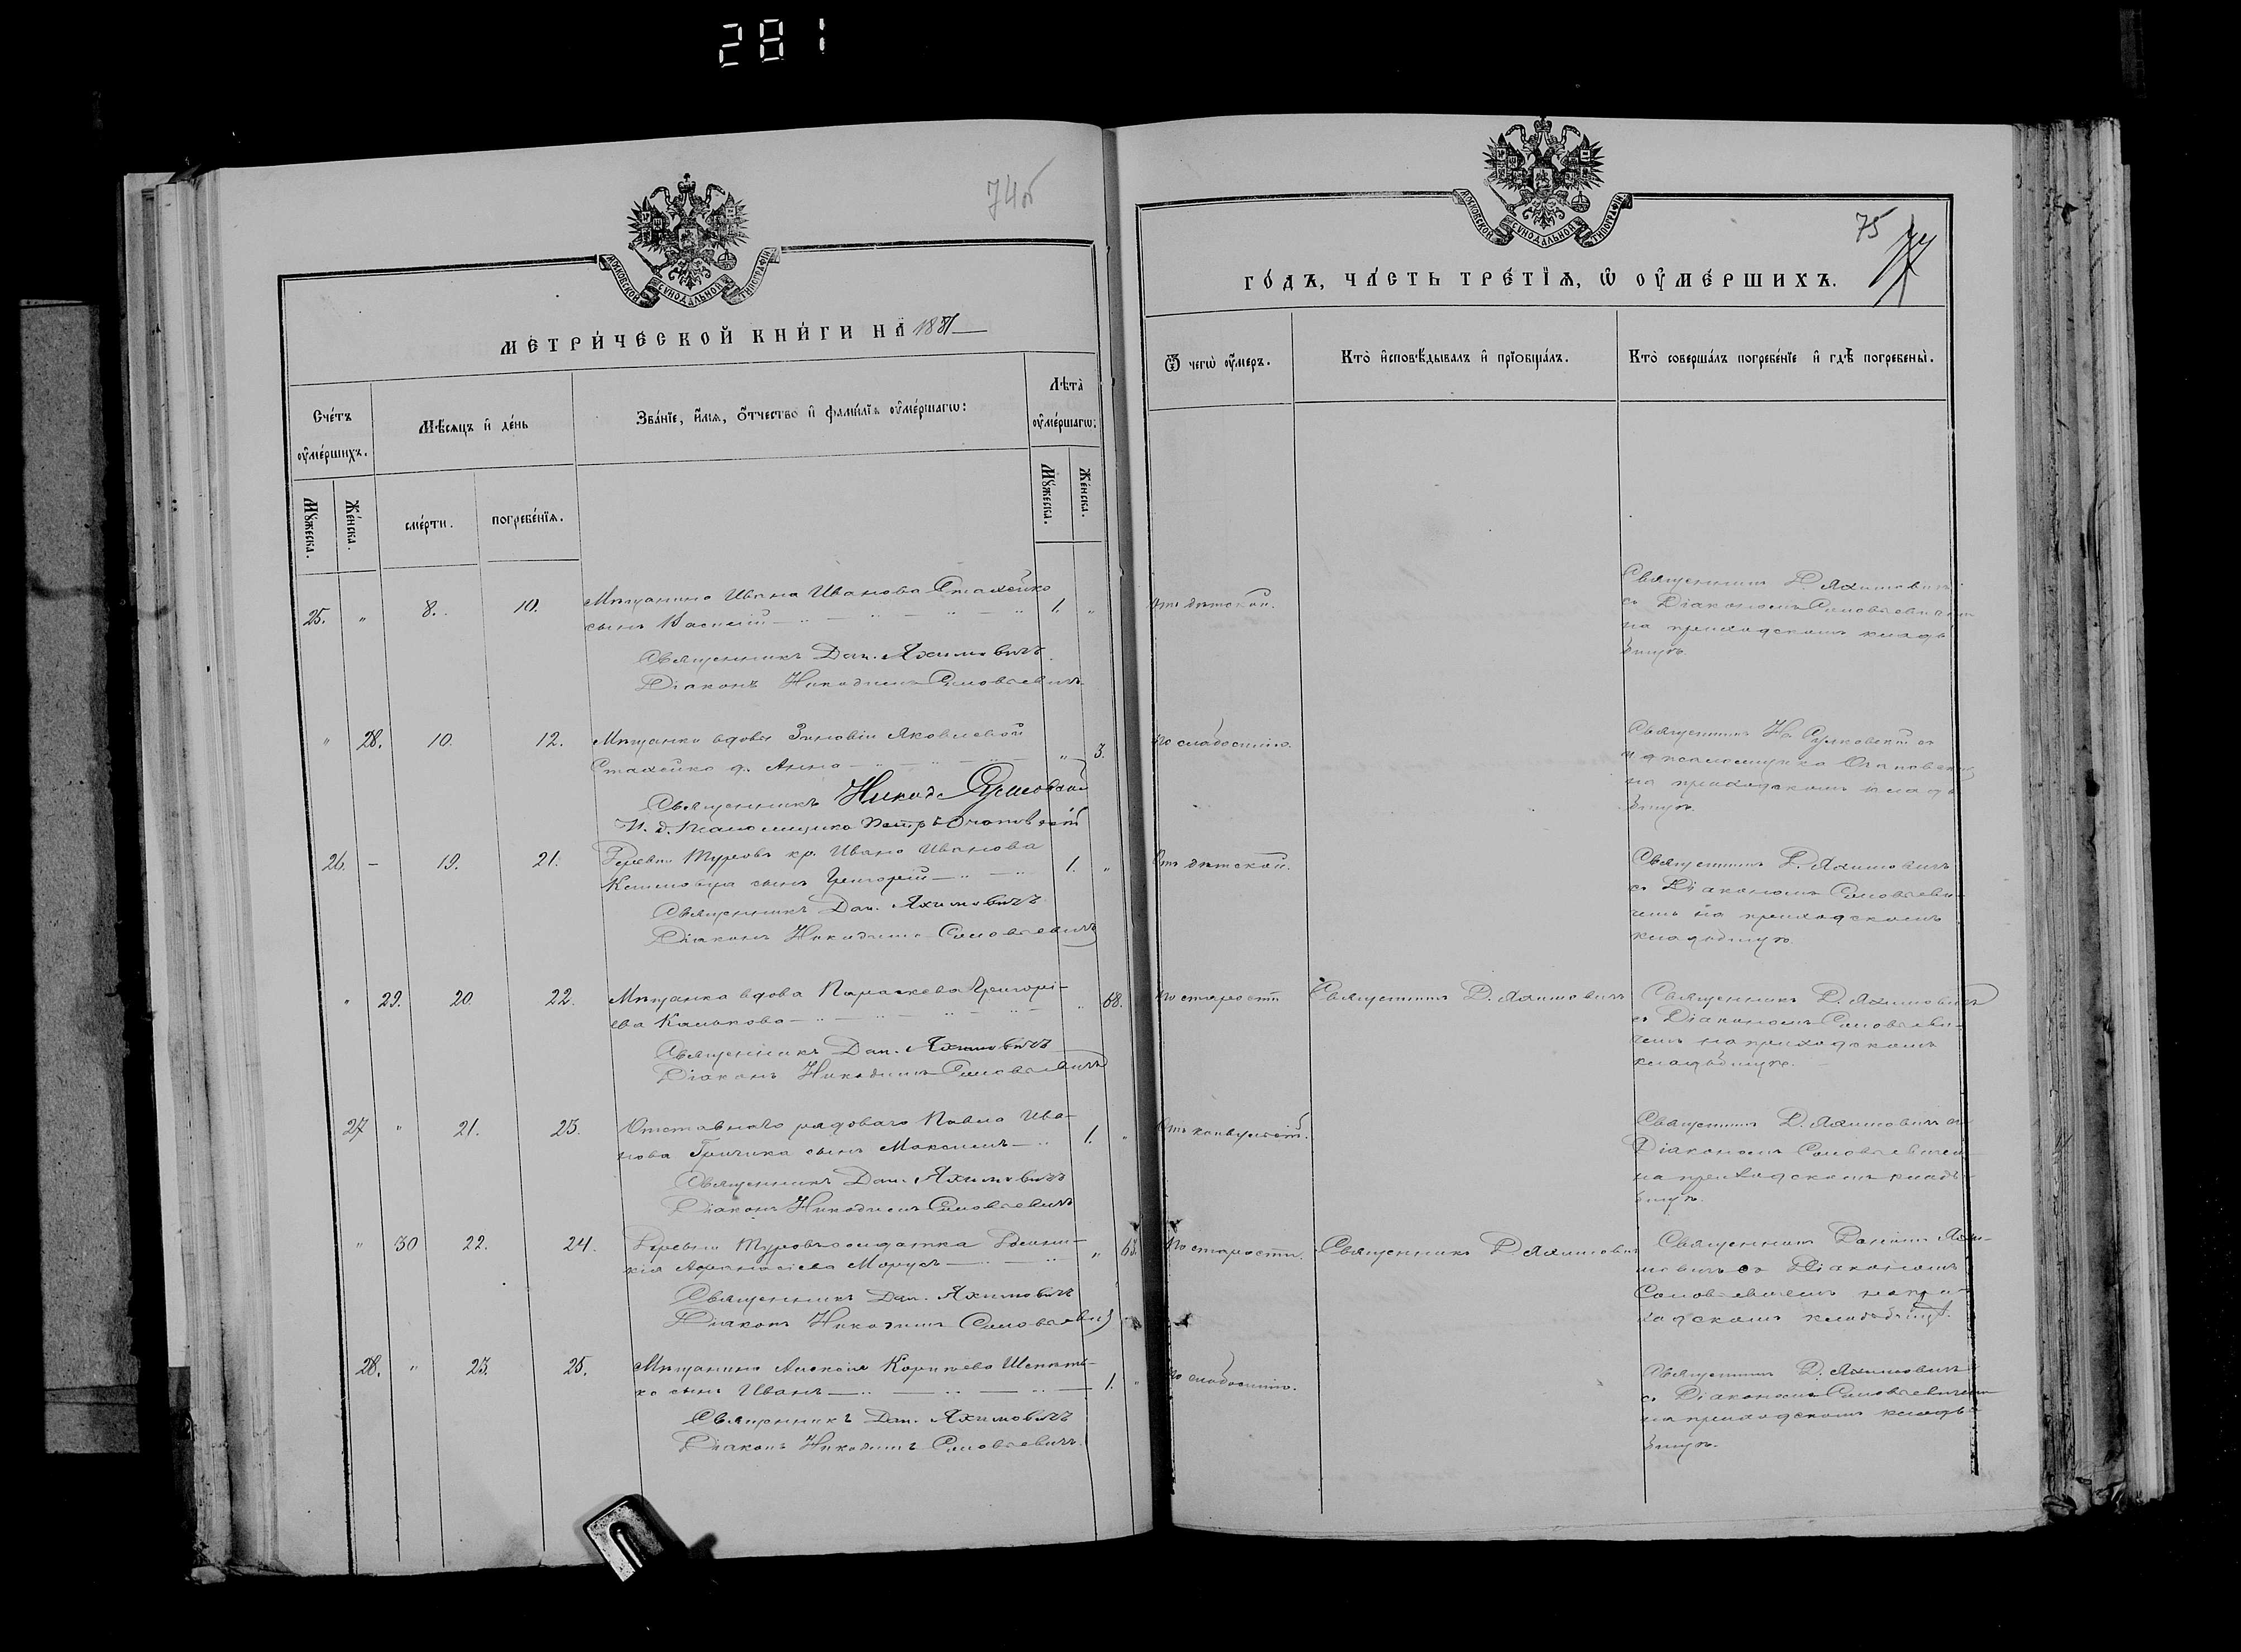 281
74б
МОСКОВСКОЙ СѴНОДАЛЬНОЙ ТИПОГРАФІИ
МЕТРИ́ЧЕСКОЙ КНИ́ГИ НА 1881
Сче́тъ ᲂу҆ме́ршихъ.
Мѣ́сяцъ и҆ де́нь
Зва́нїе, и҆́мѧ, ѻ҆́тчество и҆ фами́лїѧ ᲂу҆ме́ршагѡ:
Лѣ́та ᲂу҆ме́ршагѡ:
Мꙋ́жеска. Же́нска. сме́рти. погребе́нїѧ. Мꙋ́жеска. Же́нска.
25. " 8. 10. Мѣщанина Ивана Ивановa Стахейко 1. "
сынъ Василій
Священникъ Дан. Яхимовичъ
Діаконъ Никодимъ Соловьевичъ
" 28. 10. 12. Мѣщанки вдовы Зиновіи Яковлевой
Стахейко д. Анна " 3.
Священникъ Никод.
И. д. Псаломщика Петръ
26. – 19. 21. Деревни Туровъ кр. Ивана Иванова 1. "
сынъ Григорій
Священникъ Дан. Яхимовичъ
Діаконъ Никодимъ Соловьевичъ
" 29. 20. 22. Мѣщанка вдова Параскева Григорі-
ева " 68.
Священникъ Дан. Яхимовичъ
Діаконъ Никодимъ Соловьевичъ
27 " 21. 23. Отставнаго рядоваго Павла Ива-
нова Гричика сынъ Максимъ 1. "
Священникъ Дан. Яхимовичъ
Діаконъ Никодимъ Соловьевичъ
" 30 22. 24. Деревни Туровъ солдатка
Афанасіева "
Священникъ Дан. Яхимовичъ
Діаконъ Никодимъ Соловьевичъ
28. " 23. 25. Мѣщанина Алексія
ко сынъ Иванъ 1. "
Священникъ Дан. Яхимовичъ
Діаконъ Никодимъ Соловьевичъ.
МОСКОВСКОЙ СѴНОДАЛЬНОЙ ТИПОГРАФІИ
75
ГО́ДЪ, ЧА́СТЬ ТРЕ́ТЇѦ, Ѡ҆ ОУ҆МЕ́РШИХЪ.
Ѿ чегѡ̀ ᲂу҆́меръ.
Кто̀ и҆сповѣ́дывалъ и҆ прїѡбща́лъ.
Кто̀ соверша́лъ погребе́нїе и҆ гдѣ̀ погребены̀.
Отъ дѣтской.
Священникъ Д. Яхимовичъ
съ Діакономъ Соловьевичемъ
на приходскомъ клад-
бищѣ.
По слабости.
Священникъ
на приходскомъ клад-
бищѣ.
Отъ дѣтской.
Священникъ Д. Яхимовичъ
съ Діакономъ Соловьеви-
чемъ на приходскомъ
кладбищѣ.
По старости Священникъ Д. Яхимовичъ
Священникъ Д. Яхимовичъ
съ Діакономъ Соловьеви-
чемъ на приходскомъ
кладбищѣ.
Отъ конвульсій.
Священникъ Д. Яхимовичъ съ
Діакономъ Соловьевичемъ
на приходскомъ клад-
бищѣ.
По старости. Священникъ Д Яхимовичъ
Священникъ Даніилъ Яхи-
мовичъ съ Діакономъ
Соловьевичемъ на при-
ходскомъ кладбищѣ.
По слабости.
Священникъ Д. Яхимовичъ
съ Діакономъ Соловьевичемъ
на приходскомъ клад-
бищѣ.